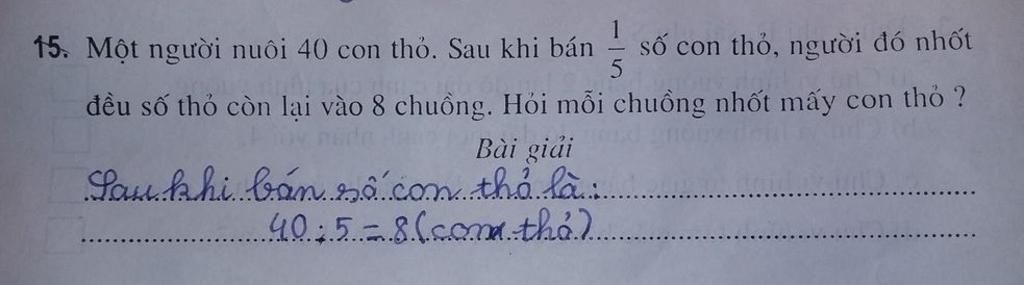 15. Một người nuôi 40 con thỏ. Sau khi bán 1/5 số con thỏ, người đó nhốt
đều số thỏ còn lại vào 8 chuồng. Hỏi mỗi chuồng nhốt mấy con thỏ ?
Bài giải
Sau khi bán số con thỏ là:
40 : 5 = 8 (con thỏ)